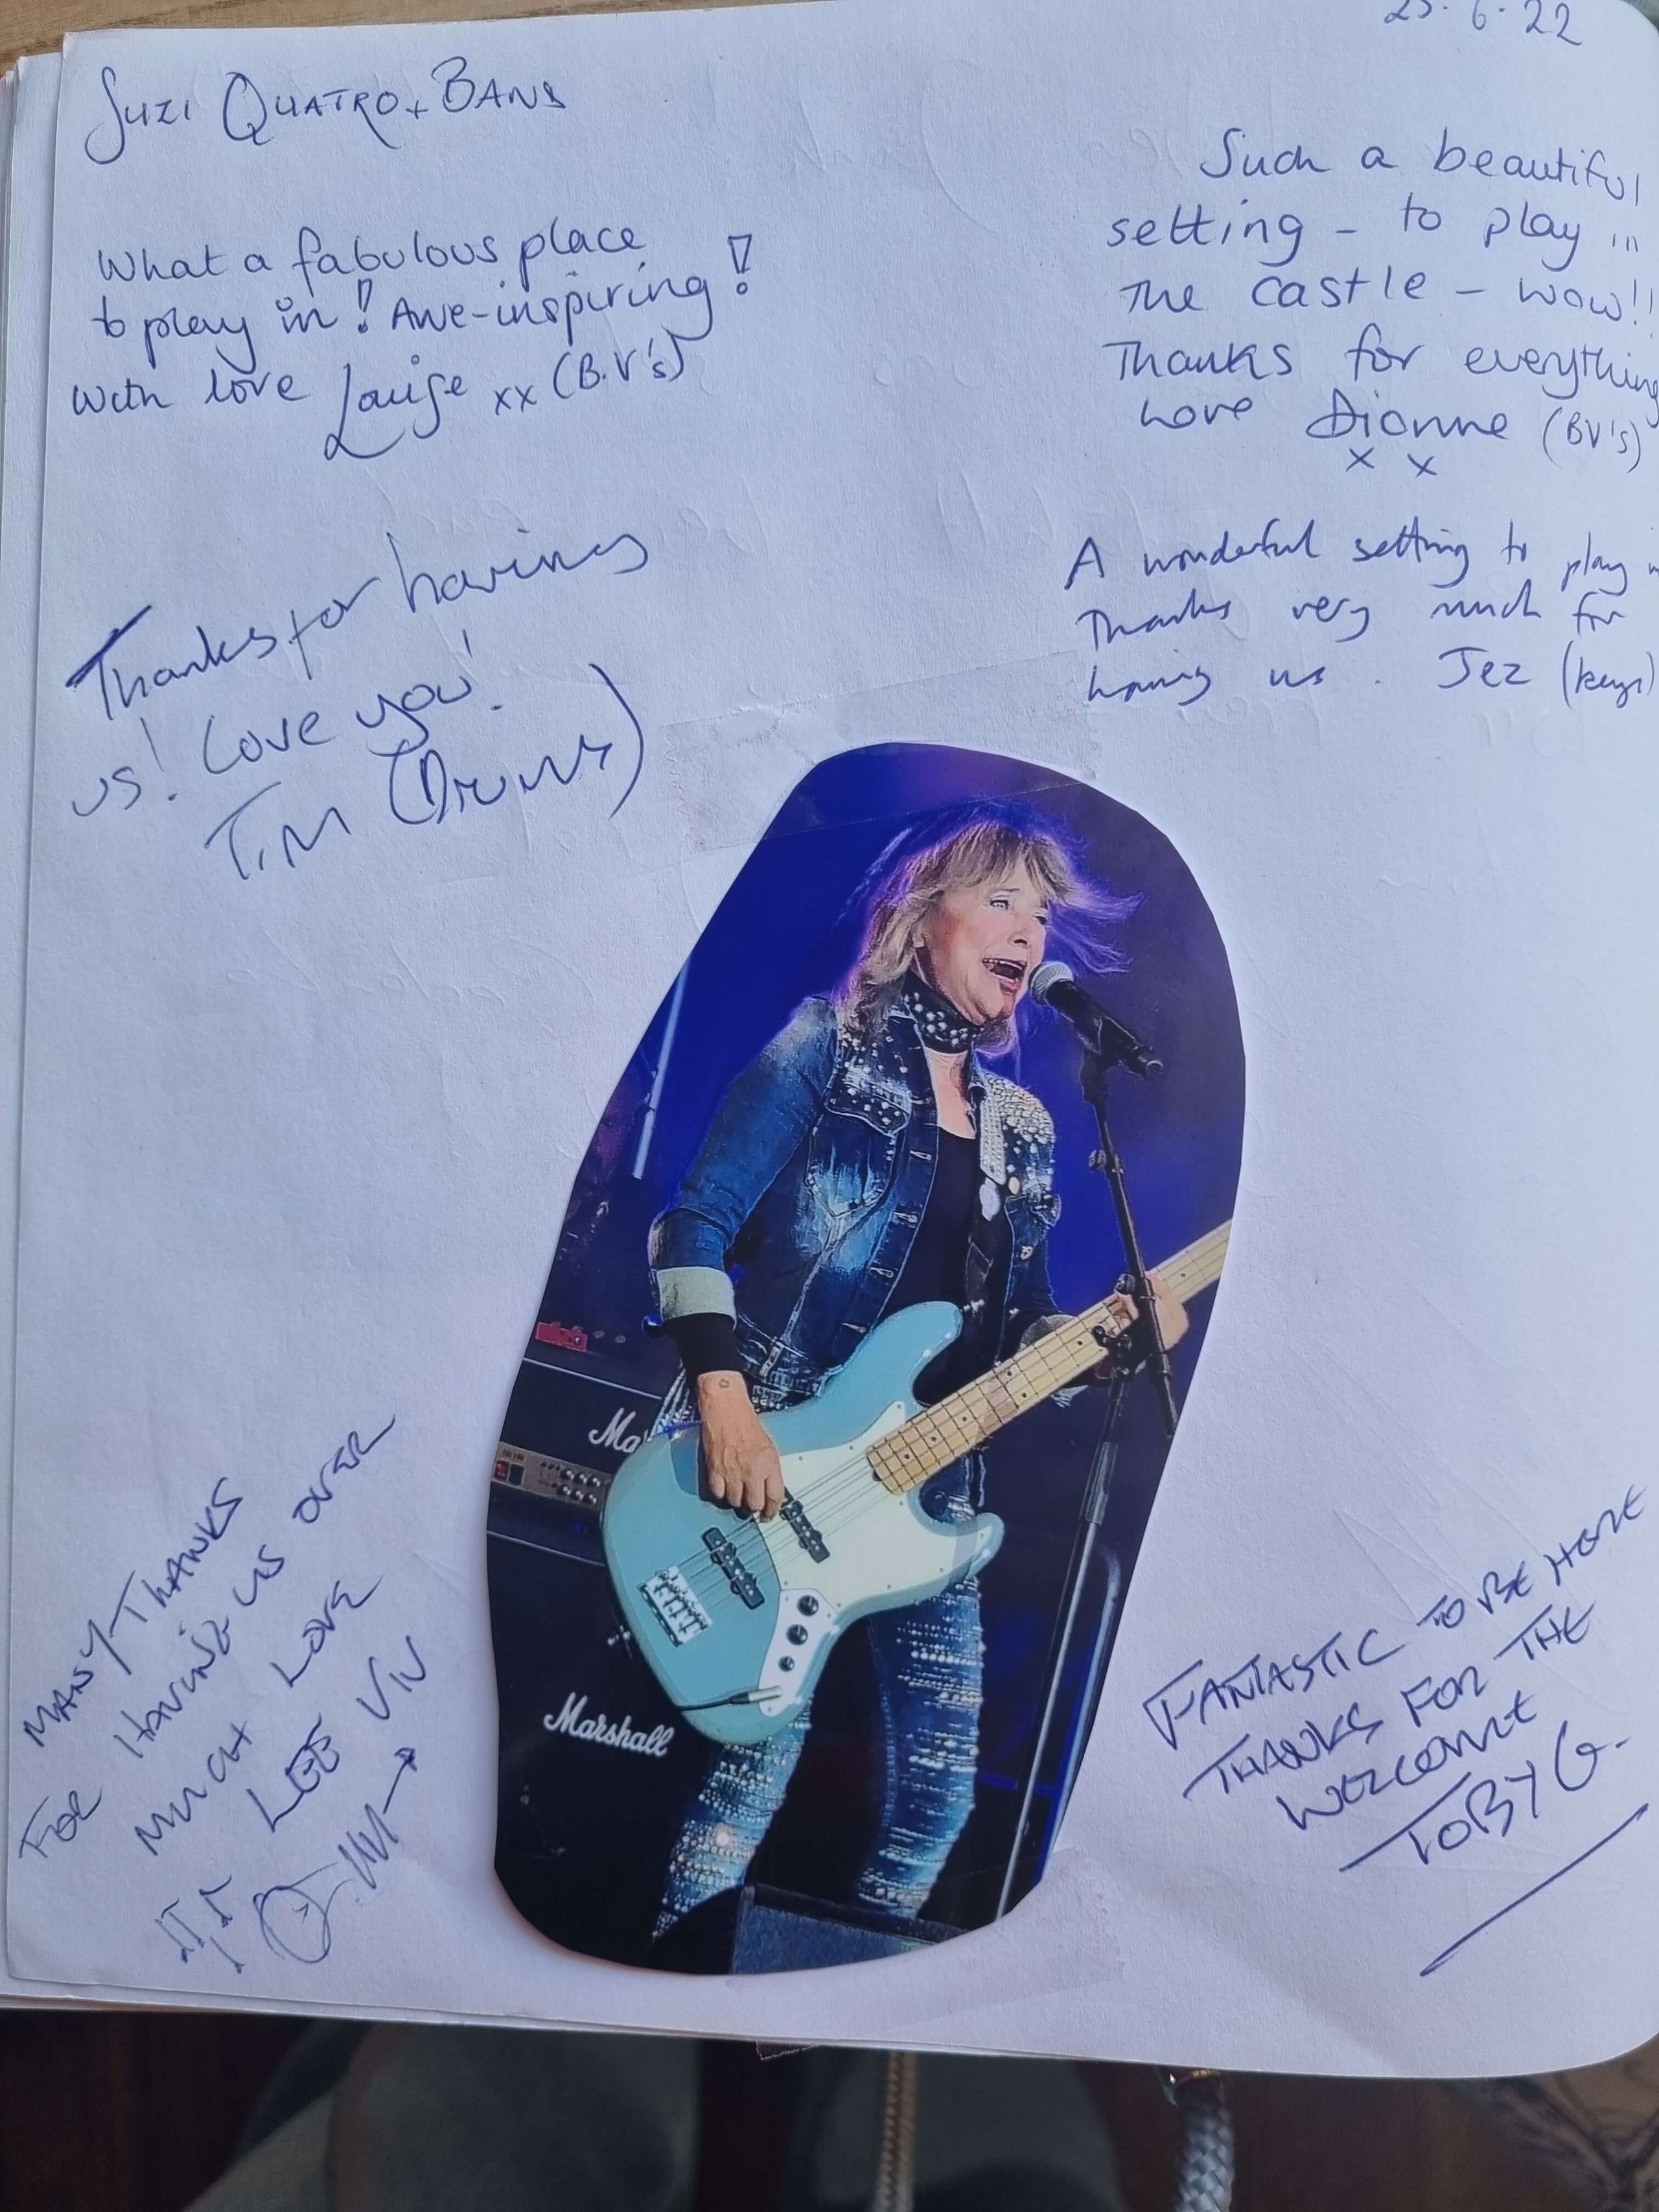 25.6.22
SUZI QUATRO + BAND
What a fabulous place
to play in! Awe-inspiring!
with love Louise xx (B.V's)
Such a beautiful
setting - to play in
the castle - wow!!
Thanks for everything
Love Dionne (BV's)
x x
Thanks for having
us! Love you!
TIM (Drums)
A wonderful setting to play in
Thanks very much for
having us. Jez (keys)
Ma
Marshall
MANY THANKS
FOR HAVING US OVER
MUCH LOVE
LEE VIV
FANTASTIC TO BE HOME
THANKS FOR THE
WELCOME
TOBY G.